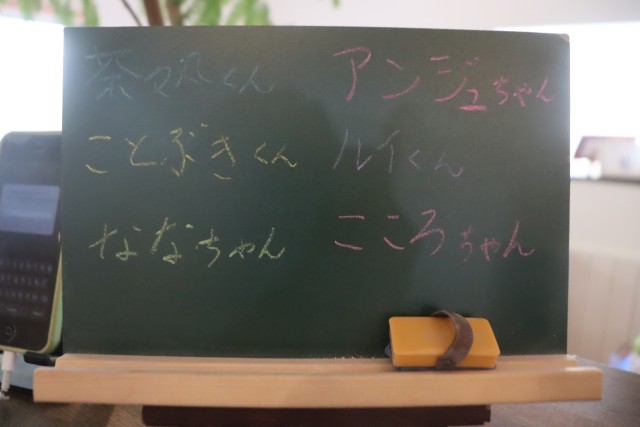 茶々丸くん
ことぶきくん
ななちゃん
アンジュちゃん
ルイくん
こころちゃん